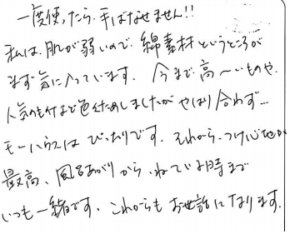 一度使ったら、手ばなせません!!
私は、肌が弱いので、綿素材というところが
まず気に入っています。今まで高〜いものや、
人気のものなど色々ためしましたがやはり合わず…
モーハウスはぴったりです。それから、つけ心地が
最高、風呂あがりから、ねている時まで
いつも一緒です。これからもお世話になります。